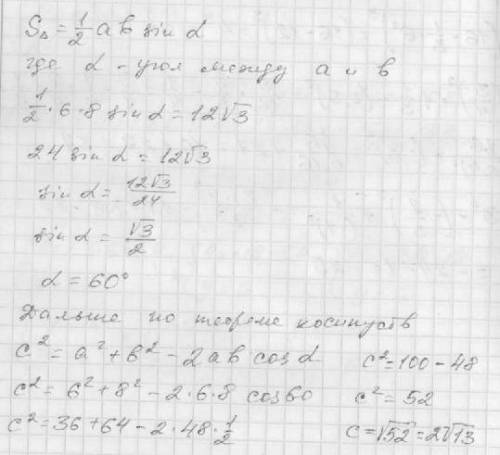 S△ = 1/2 a b sin α
где α - угол между a и b
1/2 · 6 · 8 sin α = 12√3
24 sin α = 12√3
sin α = 12√3/24
sin α = √3/2
α = 60°
Дальше по теореме косинусов
c² = a² + b² - 2ab cos α
c² = 6² + 8² - 2·6·8 cos 60
c² = 36 + 64 - 2·48·1/2
c² = 100 - 48
c² = 52
c = √52 = 2√13